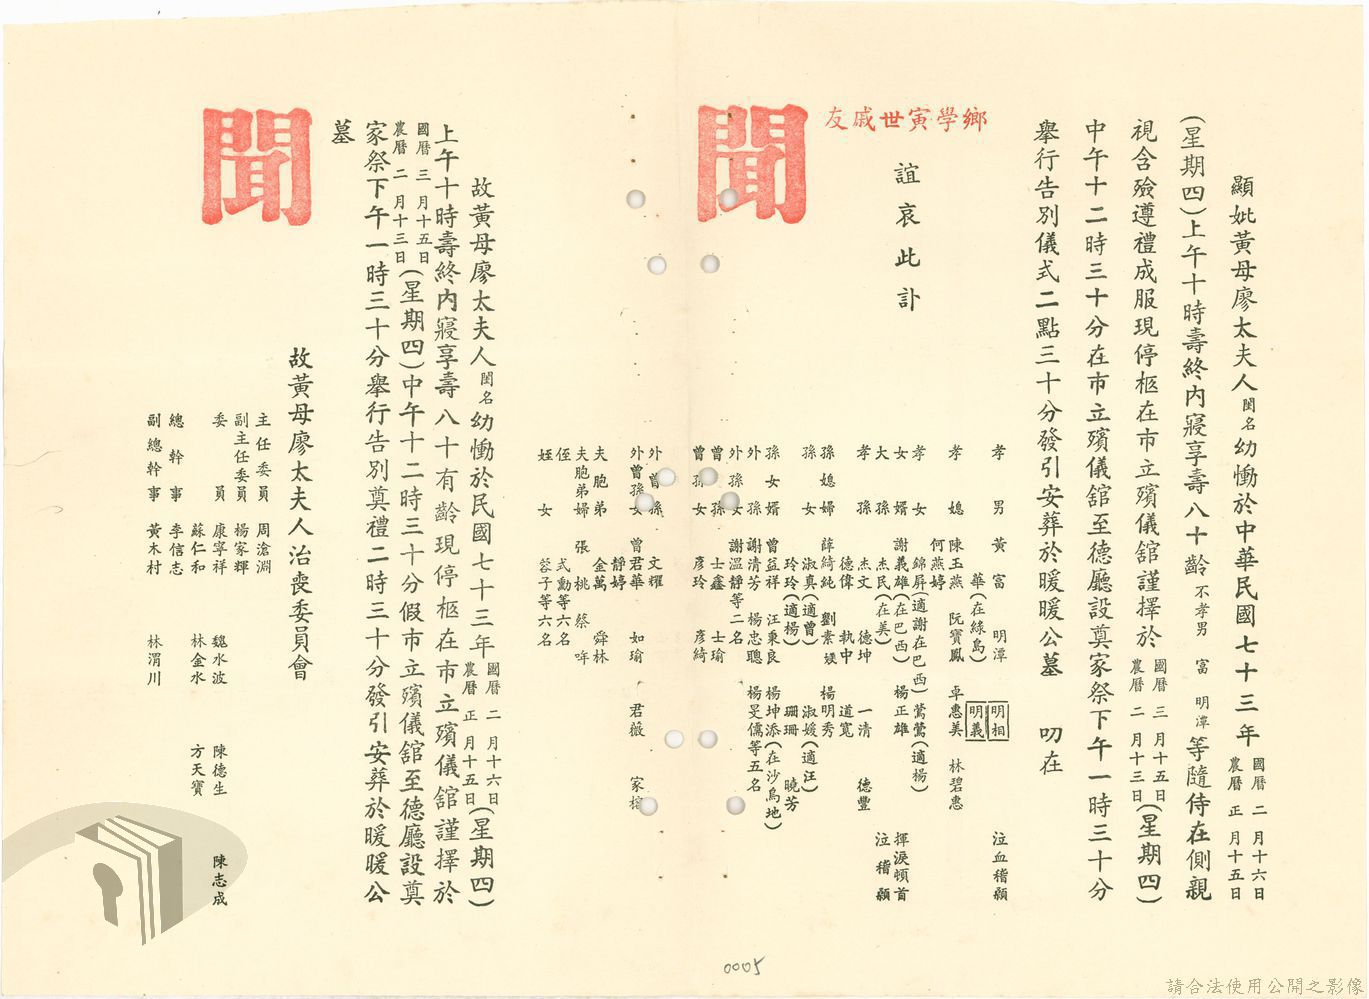 顯妣黃母廖太夫人閨名幼慟於中華民國七十三年國曆二月十六日農曆正月十五日
(星期四)上午十時壽終內寢享壽八十齡不孝男富明潭等隨侍在側親
視含殮遵禮成服現停柩在市立殯儀舘謹擇於國曆三月十五日農曆二月十三日(星期四)
中午十二時三十分在市立殯儀舘至德廳設奠家祭下午一時三十分
舉行告別儀式二點三十分發引安葬於暖暖公墓 叨在
鄉學寅世戚友
誼哀此訃
聞
孝男黃富 明潭 明相 泣血稽顙
華(在綠島) 明義
孝媳陳玉燕 阮寶鳳 卓惠美 林碧惠
何燕婷
孝女錦屏(適謝在巴西) 鶯鶯(適楊)
女婿謝義雄(在巴西) 楊正雄 揮淚頓首
大孫杰民(在美) 泣稽顙
孝孫杰文 德坤 一清 德豐
德偉 執中 道寬
孫媳婦薛綺純 劉素媖 楊明秀
孫女淑真(適曾) 淑媛(適汪)
玲玲(適楊) 珊珊 曉芳
孫女婿曾益祥 汪秉良 楊坤添(在沙烏地)
外孫謝清芳 楊忠聰 楊旻儒等五名
外孫女謝溫靜等二名
曾孫士鑫 士瑜
曾孫女彥玲 彥綺
外曾孫文耀
外曾孫女曾君華 如瑜 君薇 家榕
靜婷
夫胞弟金萬 舜林
夫胞弟婦張桃 蔡哖
侄式勳等六名
姪女蓉子等六名
故黃母廖太夫人閨名幼慟於民國七十三年國曆二月十六日農曆正月十五日(星期四)
上午十時壽終內寢享壽八十有齡現停柩在市立殯儀舘謹擇於
國曆三月十五日農曆二月十三日(星期四)中午十二時三十分假市立殯儀舘至德廳設奠
家祭下午一時三十分舉行告別奠禮二時三十分發引安葬於暖暖公
墓
聞
故黃母廖太夫人治喪委員會
主任委員 周滄淵
副主任委員 楊家輝
委員 康寧祥 魏水波 陳德生 陳志成
蘇仁和 林金水 方天寶
總幹事 李信志
副總幹事 黃木村 林渭川
0005
請合法使用公開之影像